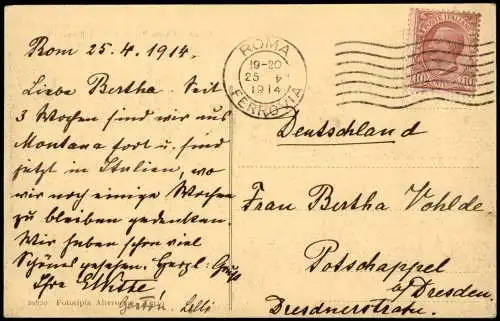 Rom 25.4.1914.
Liebe Bertha. Seit
3 Wochen sind wir aus
Montana fort u. sind
jetzt in Italien, wo
wir noch einige Wochen
zu bleiben gedenken.
Wir haben schon viel
Schönes gesehen. Herzl. Gruß
Ihre
Lilli
20820 Fototipia Alterocca
ROMA
19-20
25 4
1914
FERROVIA
POSTE ITALIANE
10 10
Deutschland
Frau Bertha Vohlde-
Potschappel
b/Dresden
Dresdnerstr.